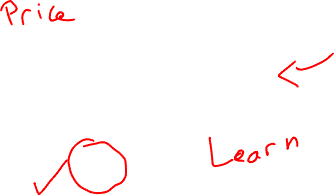 Price
Learn